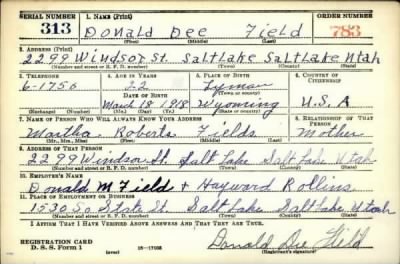 SERIAL NUMBER 1. NAME (Print) ORDER NUMBER
313 Donald Dee Field 783
(First) (Middle) (Last)
2. ADDRESS (Print)
2299 Windsor St. Salt Lake Salt Lake Utah
(Number and street or R. F. D. number) (Town) (County) (State)
3. TELEPHONE 4. AGE IN YEARS 5. PLACE OF BIRTH 6. COUNTRY OF CITIZENSHIP
6-1750 22 Lyman
DATE OF BIRTH (Town or county)
March 18 1918 Wyoming U.S.A
(Exchange) (Number) (Mo.) (Day) (Yr.) (State or country)
7. NAME OF PERSON WHO WILL ALWAYS KNOW YOUR ADDRESS 8. RELATIONSHIP OF THAT PERSON
Martha Roberts Fields Mother
(Mr., Mrs., Miss) (First) (Middle) (Last)
9. ADDRESS OF THAT PERSON
2299 Windsor St. Salt Lake Salt Lake Utah
(Number and street or R. F. D. number) (Town) (County) (State)
10. EMPLOYER'S NAME
Donald M Field + Hayward Rollins
11. PLACE OF EMPLOYMENT OR BUSINESS
1530 So State St. Salt Lake Salt Lake Utah
(Number and street or R. F. D. number) (Town) (County) (State)
I AFFIRM THAT I HAVE VERIFIED ABOVE ANSWERS AND THAT THEY ARE TRUE.
REGISTRATION CARD
D. S. S. Form 1 Donald Dee Field
(Registrant's signature)